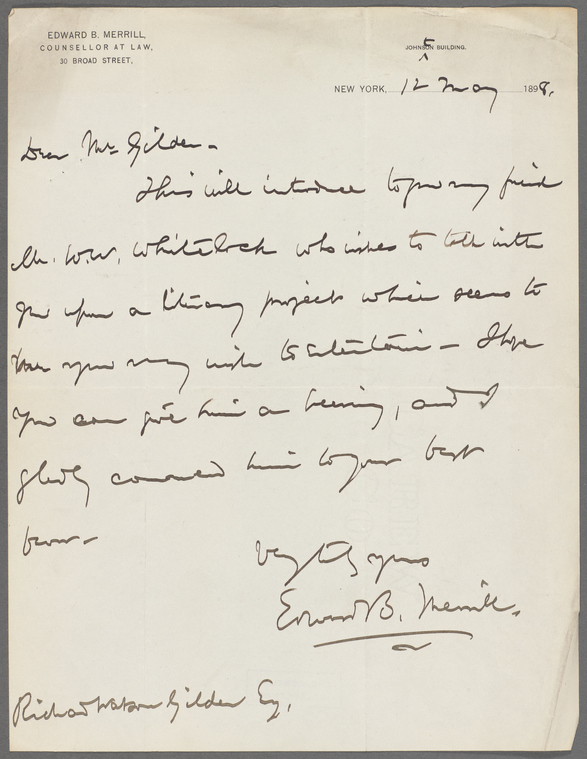 EDWARD B. MERRILL,
COUNSELLOR AT LAW,
30 BROAD STREET,
JOHNSTON BUILDING.
NEW YORK, 12 May 1898.
Dear Mr Gilder -
This will introduce to you my friend
Mr. W.W. Whitelock who wishes to talk with
you upon a literary project which seems to
you may wish to entertain - I hope
you can give him a hearing, and I
gladly commend him to your best
Very truly yours
Edward B. Merrill.
Richard Watson Gilder Esq.